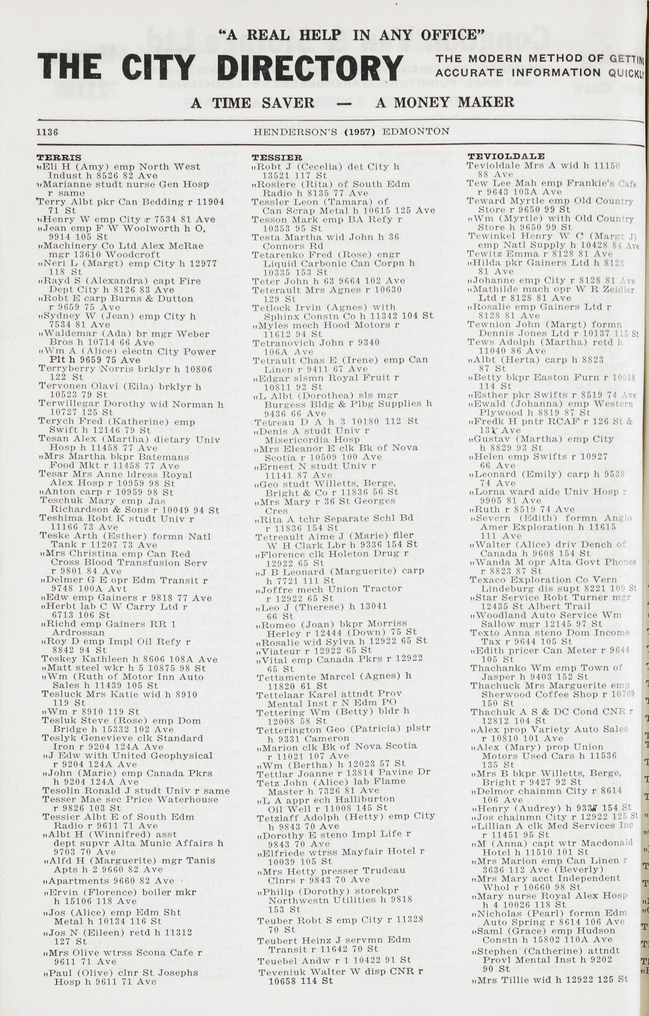 "A REAL HELP IN ANY OFFICE"
THE CITY DIRECTORY
THE MODERN METHOD OF GETTIN
ACCURATE INFORMATION QUICKL
A TIME SAVER — A MONEY MAKER
1136
HENDERSON'S (1957) EDMONTON
TERRIS
„Eli H (Amy) emp North West
Indust h 8526 82 Ave
„Marianne studt nurse Gen Hosp
r same
Terry Albt pkr Can Bedding r 11904
71 St
„Henry W emp City r 7534 81 Ave
„Jean emp F W Woolworth h O,
9914 105 St
„Machinery Co Ltd Alex McRae
mgr 13610 Woodcroft
„Neri L (Margt) emp City h 12977
118 St
„Rayd S (Alexandra) capt Fire
Dept City h 8126 83 Ave
„Robt E carp Burns & Dutton
r 9659 75 Ave
„Sydney W (Jean) emp City h
7534 81 Ave
„Waldemar (Ada) br mgr Weber
Bros h 10714 66 Ave
„Wm A (Alice) electn City Power
Plt h 9659 75 Ave
Terryberry Norris brklyr h 10806
122 St
Tervonen Olavi (Eila) brklyr h
10523 79 St
Terwillegar Dorothy wid Norman h
10727 125 St
Terych Fred (Katherine) emp
Swift h 12146 79 St
Tesan Alex (Martha) dietary Univ
Hosp h 11458 77 Ave
„Mrs Martha bkpr Batemans
Food Mkt r 11458 77 Ave
Tesar Mrs Anne ldress Royal
Alex Hosp r 10959 98 St
„Anton carp r 10959 98 St
Teschuk Mary emp Jas
Richardson & Sons r 10049 94 St
Teshima Robt K studt Univ r
11166 73 Ave
Teske Arth (Esther) formn Natl
Tank r 11207 73 Ave
„Mrs Christina emp Can Red
Cross Blood Transfusion Serv
r 9801 84 Ave
„Delmer G E opr Edm Transit r
9748 100A Avt
„Edw emp Gainers r 9818 77 Ave
„Herbt lab C W Carry Ltd r
6713 106 St
„Richd emp Gainers RR 1
Ardrossan
„Roy D emp Impl Oil Refy r
8842 94 St
Teskey Kathleen h 8606 108A Ave
„Matt steel wkr h 5 10875 98 St
„Wm (Ruth of Motor Inn Auto
Sales h 11439 105 St
Tesluck Mrs Katie wid h 8910
119 St
„Wm r 8910 119 St
Tesluk Steve (Rose) emp Dom
Bridge h 15332 102 Ave
Teslyk Genevieve clk Standard
Iron r 9204 124A Ave
„J Edw with United Geophysical
r 9204 124A Ave
„John (Marie) emp Canada Pkrs
h 9204 124A Ave
Tesolin Ronald J studt Univ r same
Tesser Mae sec Price Waterhouse
r 9826 103 St
Tessier Albt E of South Edm
Radio r 9611 71 Ave
„Albt H (Winnifred) asst
dept supvr Alta Munic Affairs h
9703 70 Ave
„Alfd H (Marguerite) mgr Tanis
Apts h 2 9660 82 Ave
„Apartments 9660 82 Ave
„Ervin (Florence) boiler mkr
h 15106 118 Ave
„Jos (Alice) emp Edm Sht
Metal h 10134 116 St
„Jos N (Eileen) retd h 11312
127 St
„Mrs Olive wtrss Scona Cafe r
9611 71 Ave
„Paul (Olive) clnr St Josephs
Hosp h 9611 71 Ave
TESSIER
„Robt J (Cecelia) det City h
13521 117 St
„Rosiere (Rita) of South Edm
Radio h 8135 77 Ave
Tessler Leon (Tamara) of
Can Scrap Metal h 10615 125 Ave
Tesson Mark emp BA Refy r
10353 95 St
Testa Martha wid John h 36
Connors Rd
Tetarenko Fred (Rose) engr
Liquid Carbonic Can Corpn h
10335 153 St
Teter John h 63 9664 102 Ave
Teterault Mrs Agnes r 10630
129 St
Tetlock Irvin (Agnes) with
Sphinx Constn Co h 11342 104 St
„Myles mech Hood Motors r
11612 94 St
Tetranovich John r 9340
106A Ave
Tetrault Chas E (Irene) emp Can
Linen r 9411 67 Ave
„Edgar slsmn Royal Fruit r
10811 92 St
„L Albt (Dorothea) sls mgr
Burgess Bldg & Plbg Supplies h
9436 66 Ave
Tetreau D A h 3 10180 112 St
„Denis A studt Univ r
Misericordia Hosp
„Mrs Eleanor E clk Bk of Nova
Scotia r 10509 100 Ave
„Ernest N studt Univ r
11141 87 Ave
„Geo studt Willetts, Berge,
Bright & Co r 11836 56 St
„Mrs Mary r 36 St Georges
Cres
„Rita A tchr Separate Schl Bd
r 11836 154 St
Tetreault Aime J (Marie) filer
W H Clark Lbr h 9336 154 St
„Florence clk Holeton Drug r
12922 65 St
„J B Leonard (Marguerite) carp
h 7721 111 St
„Joffre mech Union Tractor
r 12922 65 St
„Leo J (Therese) h 13041
66 St
„Romeo (Joan) bkpr Morriss
Herley r 12444 (Down) 75 St
„Rosalie wid Sylva h 12922 65 St
„Viateur r 12922 65 St
„Vital emp Canada Pkrs r 12922
65 St
Tettamente Marcel (Agnes) h
11820 61 St
Tettelaar Karel attndt Prov
Mental Inst r N Edm PO
Tettering Wm (Betty) bldr h
12008 58 St
Tetterington Geo (Patricia) plstr
h 9331 Cameron
„Marion clk Bk of Nova Scotia
r 11021 107 Ave
„Wm (Bertha) h 12023 57 St
Tettlar Joanne r 13814 Pavine Dr
Tetz John (Alice) lab Flame
Master h 7326 81 Ave
„L A appr ech Halliburton
Oil Well r 11008 145 St
Tetzlaff Adolph (Hetty) emp City
h 9843 70 Ave
„Dorothy E steno Impl Life r
9843 70 Ave
„Elfriede wtrss Mayfair Hotel r
10039 105 St
„Mrs Hetty presser Trudeau
Clnrs r 9843 70 Ave
„Philip (Dorothy) storekpr
Northwestn Utilities h 9818
153 St
Teuber Robt S emp City r 11328
70 St
Teubert Heinz J servmn Edm
Transit r 11642 70 St
Teuebel Andw r 1 10422 91 St
Teveniuk Walter W disp CNR r
10658 114 St
TEVIOLDALE
Tevioldale Mrs A wid h 11150
88 Ave
Tew Lee Mah emp Frankie's Cafe
r 9643 103A Ave
Teward Myrtle emp Old Country
Store r 9650 99 St
„Wm (Myrtle) with Old Country
Store h 9650 99 St
Tewinkel Henry W C (Margt J)
emp Natl Supply h 10428 84 Ave
Tewitz Emma r 8128 81 Ave
„Hilda pkr Gainers Ltd h 8128
81 Ave
„Johanne emp City r 8128 81 Ave
„Mathilde mach opr W R Zeidler
Ltd r 8128 81 Ave
„Rosalie emp Gainers Ltd r
8128 81 Ave
Tewnion John (Margt) formn
Dennis Jones Ltd r 10137 115 St
Tews Adolph (Martha) retd h
11040 86 Ave
„Albt (Herta) carp h 8823
87 St
„Betty bkpr Easton Furn r 10618
114 St
„Esther pkr Swifts r 8519 74 Ave
„Ewald (Johanna) emp Western
Plywood h 8819 87 St
„Fredk H pntr RCAF r 126 St &
137 Ave
„Gustav (Martha) emp City
h 8829 93 St
„Helen emp Swifts r 10927
66 Ave
„Leonard (Emily) carp h 9538
74 Ave
„Lorna ward aide Univ Hosp r
9905 81 Ave
„Ruth r 8519 74 Ave
„Severn (Edith) formn Anglo
Amer Exploration h 11615
111 Ave
„Walter (Alice) driv Dench of
Canada h 9608 154 St
„Wanda M opr Alta Govt Phones
r 8823 87 St
Texaco Exploration Co Vern
Lindeburg dis supt 8221 109 St
„Star Service Robt Turner mgr
12435 St Albert Trail
„Woodland Auto Service Wm
Sallow mgr 12145 97 St
Texto Anna steno Dom Income
Tax r 9644 105 St
„Edith pricer Can Meter r 9644
105 St
Thachanko Wm emp Town of
Jasper h 9403 152 St
Thachuck Mrs Marguerite emp
Sherwood Coffee Shop r 10709
150 St
Thachuk A S & DC Cond CNR r
12812 104 St
„Alex prop Variety Auto Sales
r 10810 101 Ave
„Alex (Mary) prop Union
Motors Used Cars h 11536
135 St
„Mrs B bkpr Willetts, Berge,
Bright r 9427 92 St
„Delmor chainmn City r 8614
106 Ave
„Henry (Audrey) h 9337 154 St
„Jos chainmn City r 12922 125 St
„Lillian A clk Med Services Inc
r 11451 95 St
„M (Anna) capt wtr Macdonald
Hotel h 11510 101 St
„Mrs Marion emp Can Linen r
3636 112 Ave (Beverly)
„Mrs Mary acct Independent
Whol r 10660 98 St
„Mary nurse Royal Alex Hosp
h 4 10026 118 St
„Nicholas (Pearl) formn Edm
Auto Spring r 8614 106 Ave
„Saml (Grace) emp Hudson
Constn h 15802 110A Ave
„Stephen (Catherine) attndt
Provl Mental Inst h 9202
90 St
„Mrs Tillie wid h 12922 125 St